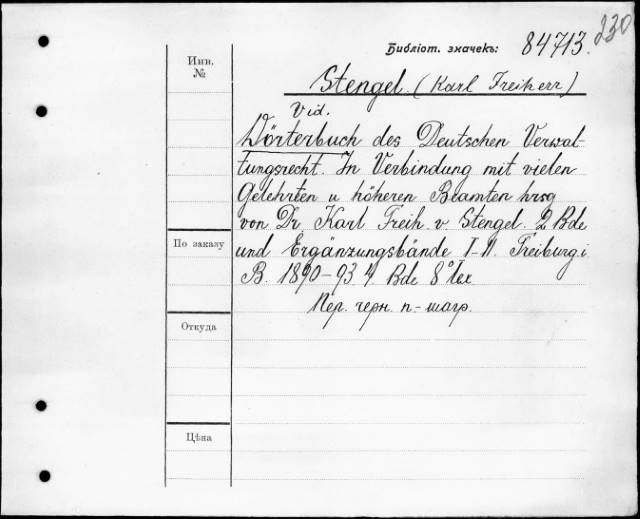 230
Библіот. значекъ: 84713.
Инв.
№
Stengel. (Karl Freiherr)
Vid.
Wörterbuch des Deutschen Verwal-
tungsrecht. In Verbindung mit vielen
Gelehrten u höheren Beamten hrsg
von Dr Karl Freih. v. Stengel. 2 Bde
По заказу
und Ergänzungsbände I-II. Freiburg. i
B. 1890-93. 4. Bde 8° lex
Пер. черн. п.- шагр.
Откуда
Цѣна